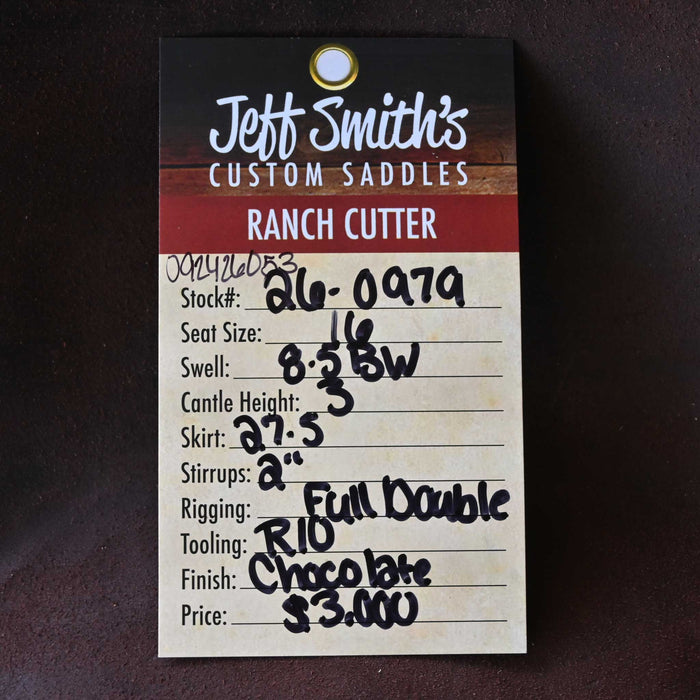 Jeff Smith's
CUSTOM SADDLES
RANCH CUTTER
092426053
Stock#: 26-0979
Seat Size: 16
Swell: 8.5 BW
Cantle Height: 3
Skirt: 27.5
Stirrups: 2"
Rigging: Full Double
Tooling: R10
Finish: Chocolate
Price: $3.000